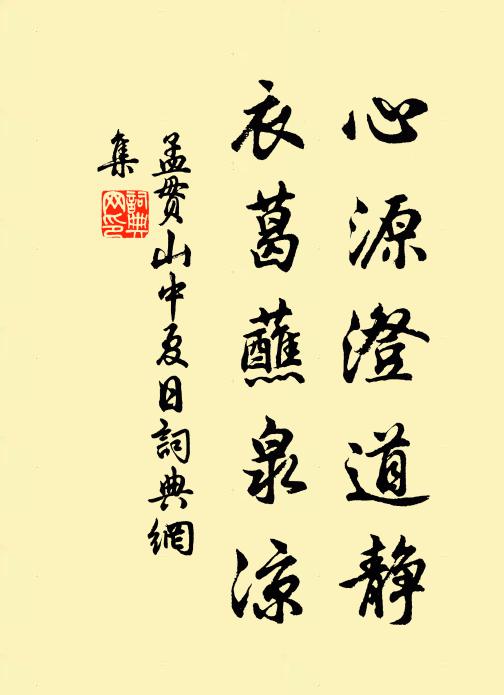 心源澄道静
衣葛蘸泉凉
孟贯山中夏日詞典網
集
詞典
网印